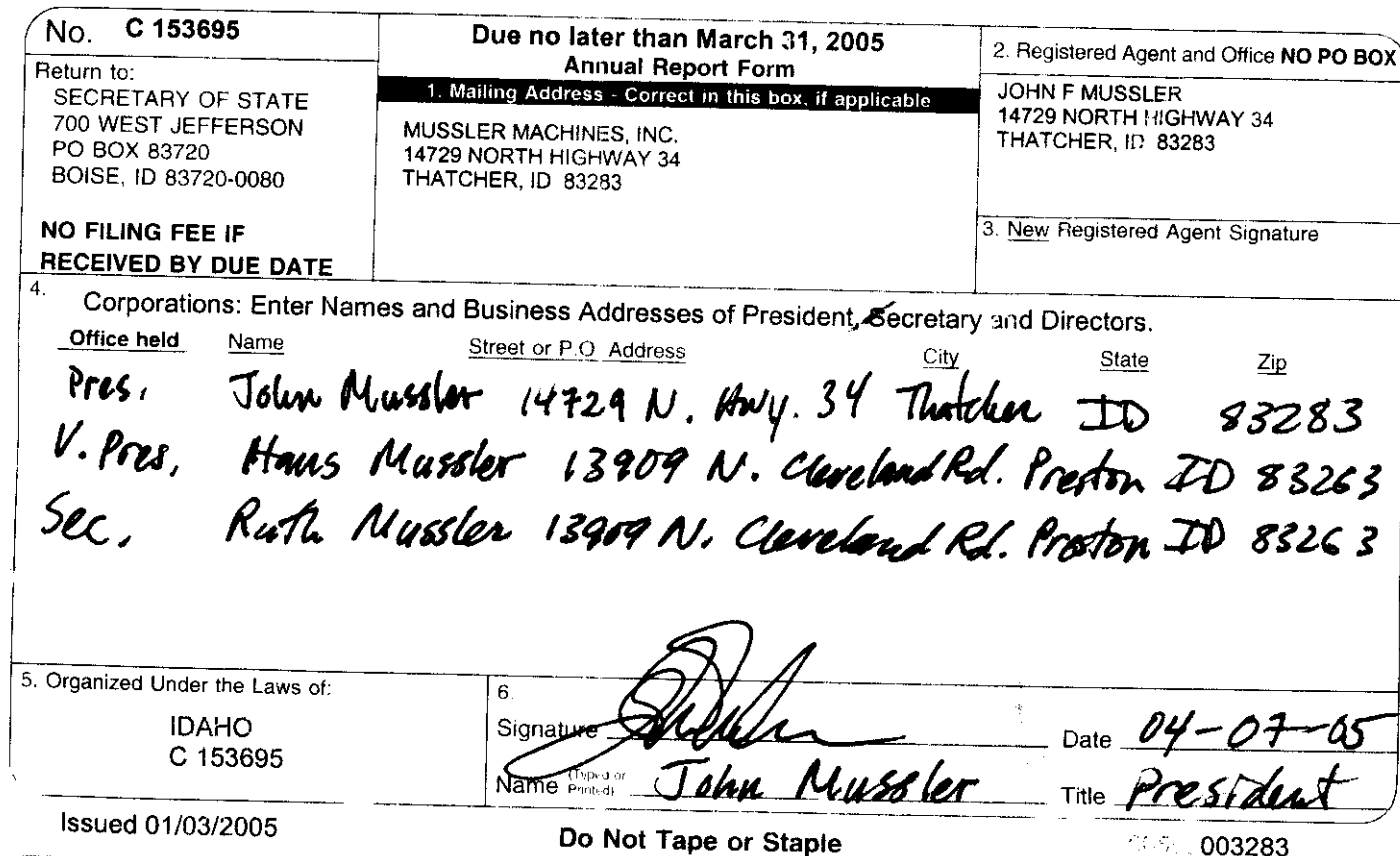 No. C 153695
Return to:
SECRETARY OF STATE
700 WEST JEFFERSON
PO BOX 83720
BOISE, ID 83720-0080
NO FILING FEE IF
RECEIVED BY DUE DATE
Due no later than March 31, 2005
Annual Report Form
1. Mailing Address - Correct in this box, if applicable
MUSSLER MACHINES, INC.
14729 NORTH HIGHWAY 34
THATCHER, ID 83283
2. Registered Agent and Office NO PO BOX
JOHN F MUSSLER
14729 NORTH HIGHWAY 34
THATCHER, ID 83283
3. New Registered Agent Signature
4. Corporations: Enter Names and Business Addresses of President, Secretary and Directors.
Office held Name Street or P.O. Address City State Zip
Pres. John Mussler 14729 N. Hwy. 34 Thatcher ID 83283
V. Pres. Hans Mussler 13909 N. Cleveland Rd. Preston ID 83263
Sec. Ruth Mussler 13909 N. Cleveland Rd. Preston ID 83263
5. Organized Under the Laws of:
IDAHO
C 153695
6.
Signature
Date 04-07-05
Name (Typed or Printed) John Mussler
Title President
Issued 01/03/2005
Do Not Tape or Staple
003283